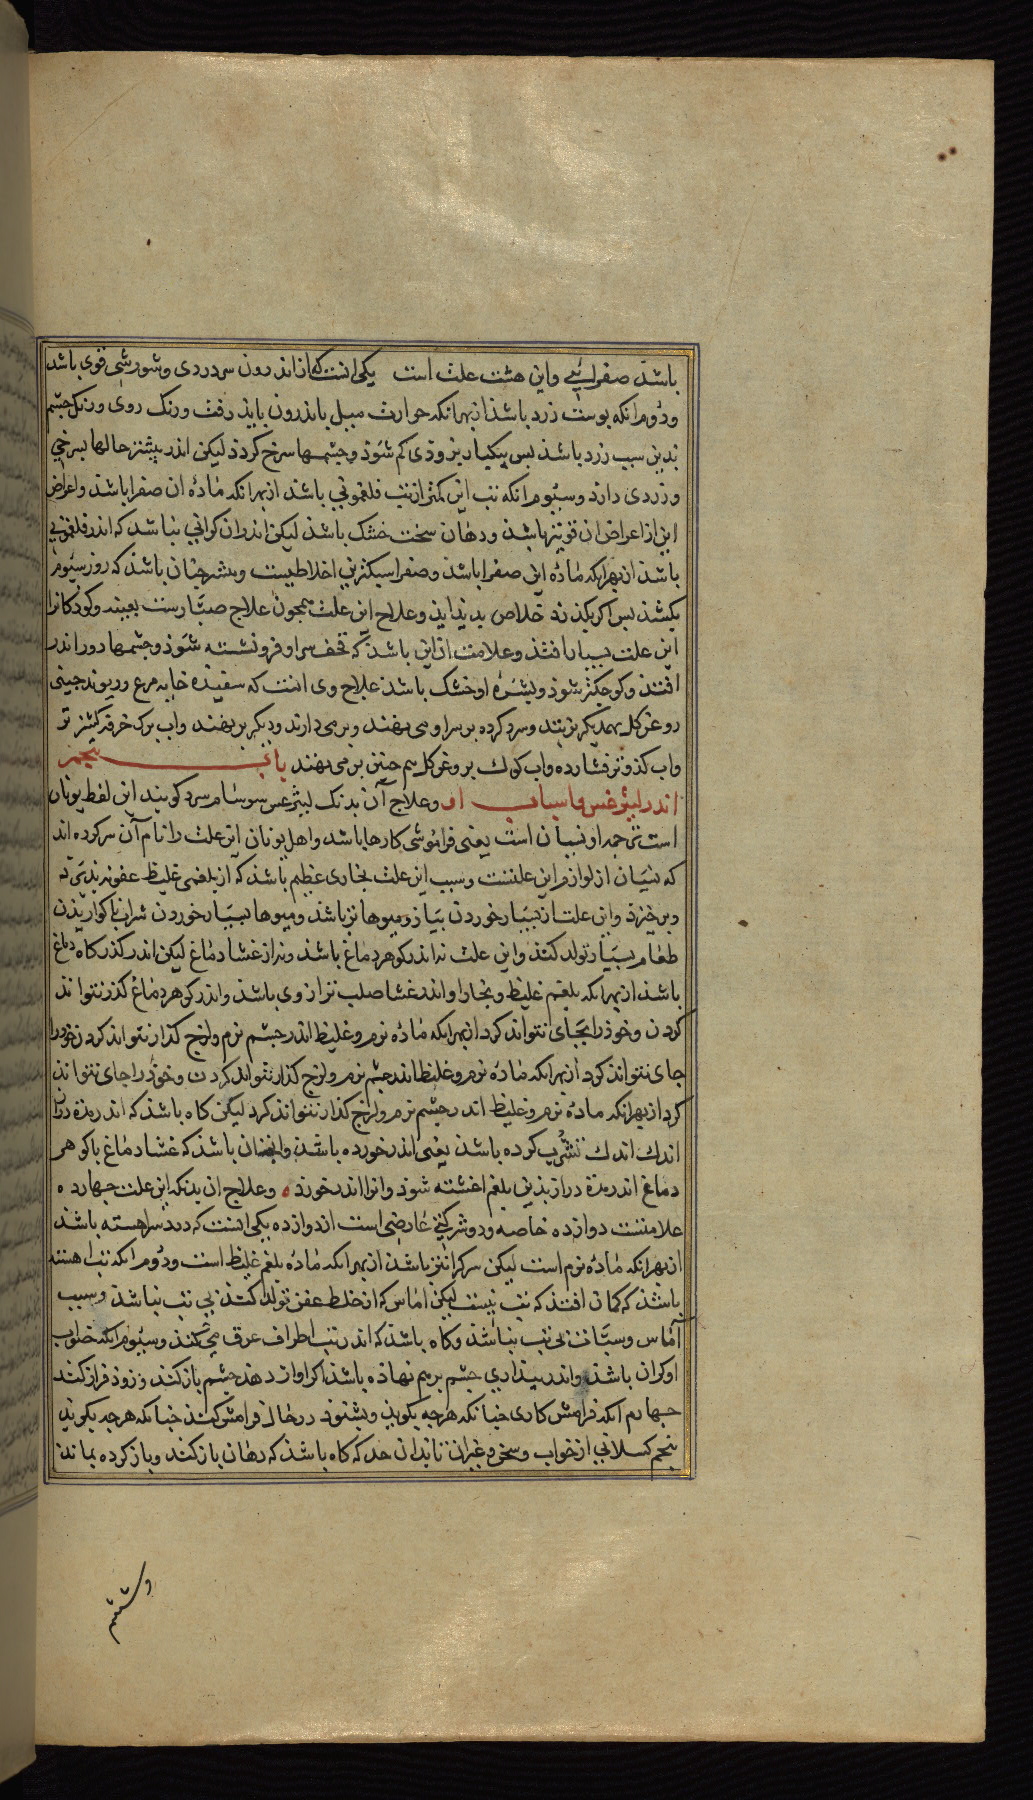 باشذ صفرائی واین هشت علت است یکی انست که از اندرون سر دردی وشورشی قوی باشد
ودوم انکه پوست زرد باشذ از بهر انکه حرارت میل باندرون باید رفت ورنک روی ورنک چشم
بدین سبب زرد باشذ بس بیکبار بزودی کم شوذ وچشمها سرخ کردد لیکن اندر بیشتر حالها بسرخی
وزردی دارد وسیوم انکه تب این کمتر از تب فلغمونی باشد از بهر انکه ماده ان صفرا باشد واعراض
این از اعراض ان قوی‌تر باشذ ودهان سخت خشک باشذ لیکن اندران کرانی نباشد که اندر فلغمونی
باشد از بهر انکه ماده این صفرا باشد وصفرا سبکترین اخلاطست وبیشتر چنان باشذ که روز سیوم
بکشد بس اکر بکذرد خلاص بدید اید وعلاج این علت همچون علاج صباراست بعینه وکودکانرا
این علت بسیار افتذ وعلامت ان این باشد که قحف سر او فرو نشسته شوذ وچشمها دور اندر
افتد وکوچکتر شوذ وبشره او خشک باشد علاج وی انست که سفیده خایه مرغ وریوند چینی
روغن کل بهم دیکر بزنند وسرد کرده بر سر او می نهند وبر می دارند ودیکر بر نهند واب برک خرفه کشنیز تر
واب کذو تر فشارده واب کوک بروغن کل هم چنین بر می نهند باب پنجم
اندر لیثرغس واسباب او وعلاج آن بدنک لیثرغس سوسام سرد کویند این لفظ یونان
است ترجمه او نسیان است یعنی فراموشی کارها باشد واهل یونان این علت را نام آن سر کرده اند
که نسیان از لوازم این علتست وسبب این علت بخاری عظیم باشد که از بلغمی غلیظ عفونه بذیرد
وبر خیزذ واین علت از بسیار خوردن بیاز ومیوها تر باشذ ومیوها بسیار خوردن شراب ناکواریدن
طعام بسیار تولد کند واین علت نه اندر کوهر دماغ باشذ ونه از غشا دماغ لیکن اندر کذرکاه دماغ
باشذ از بهر انکه بلغم غلیظ وبخار او اندر غشا صلب تر از وی باشذ واندر کوهر دماغ کذر نتواند
کردن وخوذ را بجای نتواند کرد از بهر انکه ماده نرم وغلیظ اندر جسم نرم ولزج کذار نتواند کردن خود را
جای نتواند کرد از بهر انکه ماده نرم وغلیظ اندر جسم نرم ولزج کذار نتواند کردن وخوذ را جای نتواند
کرد از بهر انکه ماده نرم وغلیظ اندر جسم نرم ولزج کذار نتواند کرد لیکن کاه باشذ که اندر مدة دراز
اندک اندک تشرب کرده باشد یعنی اندر خورده باشد وانچنان باشذ که غشا دماغ با کوهر
دماغ اندر مدة دراز بدین بلغم اغشته شوذ وانرا اندر خورد ه وعلاج ان بدنکه این علت چهارده
علامتست دوازده خاصه ودو شرکتی عارضی است از دوازده یکی انست که درد سر اهسته باشذ
از بهر انکه ماده نرم است لیکن سر کرانتر باشد از بهر انکه ماده بلغم غلیظ است ودوم انکه تب اهسته
باشذ که کمان افتذ که تب نیست لیکن اماس که از خلط عفن تولد کند بی تب نباشد وسبب
آماس وسبات بی تب نباشذ وکاه باشد که اندر تب اطراف عرق می کند وسیوم انکه خواب
او کران باشذ واندر بیداری چشم بر هم نهاده باشذ اکر اواز دهذ چشم باز کند وزود فراز کند
چهارم انکه فرامش کاری چنانکه هرچه بکویذ وبشنود در حال فرامش کند چنانکه هرچه بکویذ
پنجم کسلانی از خواب وسخن وغیران تا بدان حد که کاه باشد که دهان باز کند وباز کرده بماند
وششم